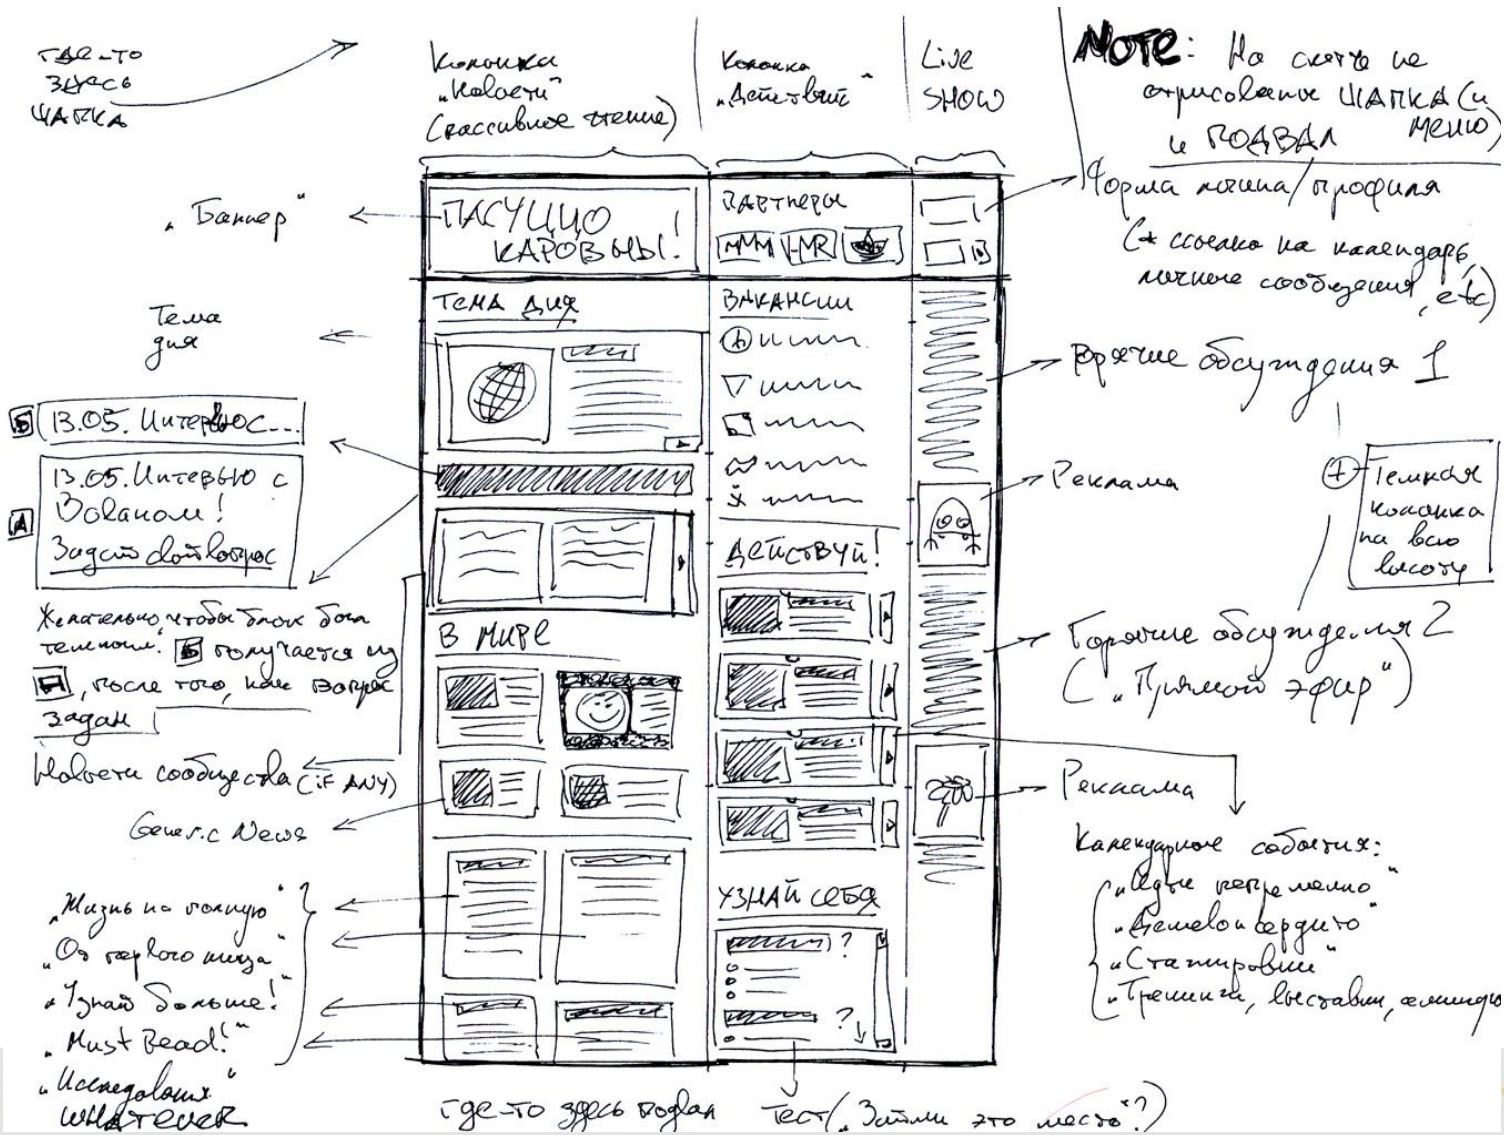 ГДЕ-ТО
ЗДЕСЬ
ШАПКА
Колонка
„Новости"
(пассивное чтение)
Колонка
„Действий"
Live
SHOW
NOTE: На скетче не
отрисованы ШАПКА (и
МЕНЮ)
и ПОДВАЛ
„Баннер"
ПАСУЦЦО
КАРОВЫЫ!
ПАРТНЕРЫ
МММ
HR
Форма логина/профиля
(+ ссылка на календарь,
личные сообщения, etc)
Тема
дня
ТЕМА ДНЯ
ВАКАНСИИ
Горячие обсуждения 1
Б
13.05. Интервью с...
А
13.05. Интервью с
Вованом!
Задай свой вопрос
Реклама
+
Темная
колонка
на всю
высоту
ДЕЙСТВУЙ!
Желательно, чтобы блок был
темным. Б получается из
А, после того, как вопрос
задан
В МИРЕ
Горячие обсуждения 2
(„Прямой эфир")
Новости сообщества (iF ANY)
Generic News
Реклама
Календарные события:
„Идти непременно"
„Дешево и сердито"
„Стажировки"
„Тренинги, выставки,
УЗНАЙ СЕБЯ
?
?
„Жизнь на полную"
„От первого лица"
„Узнай больше!"
„Must Read!"
„Исследования"
WHATEVER
где-то здесь подвал
Тест („Займи это место"?)